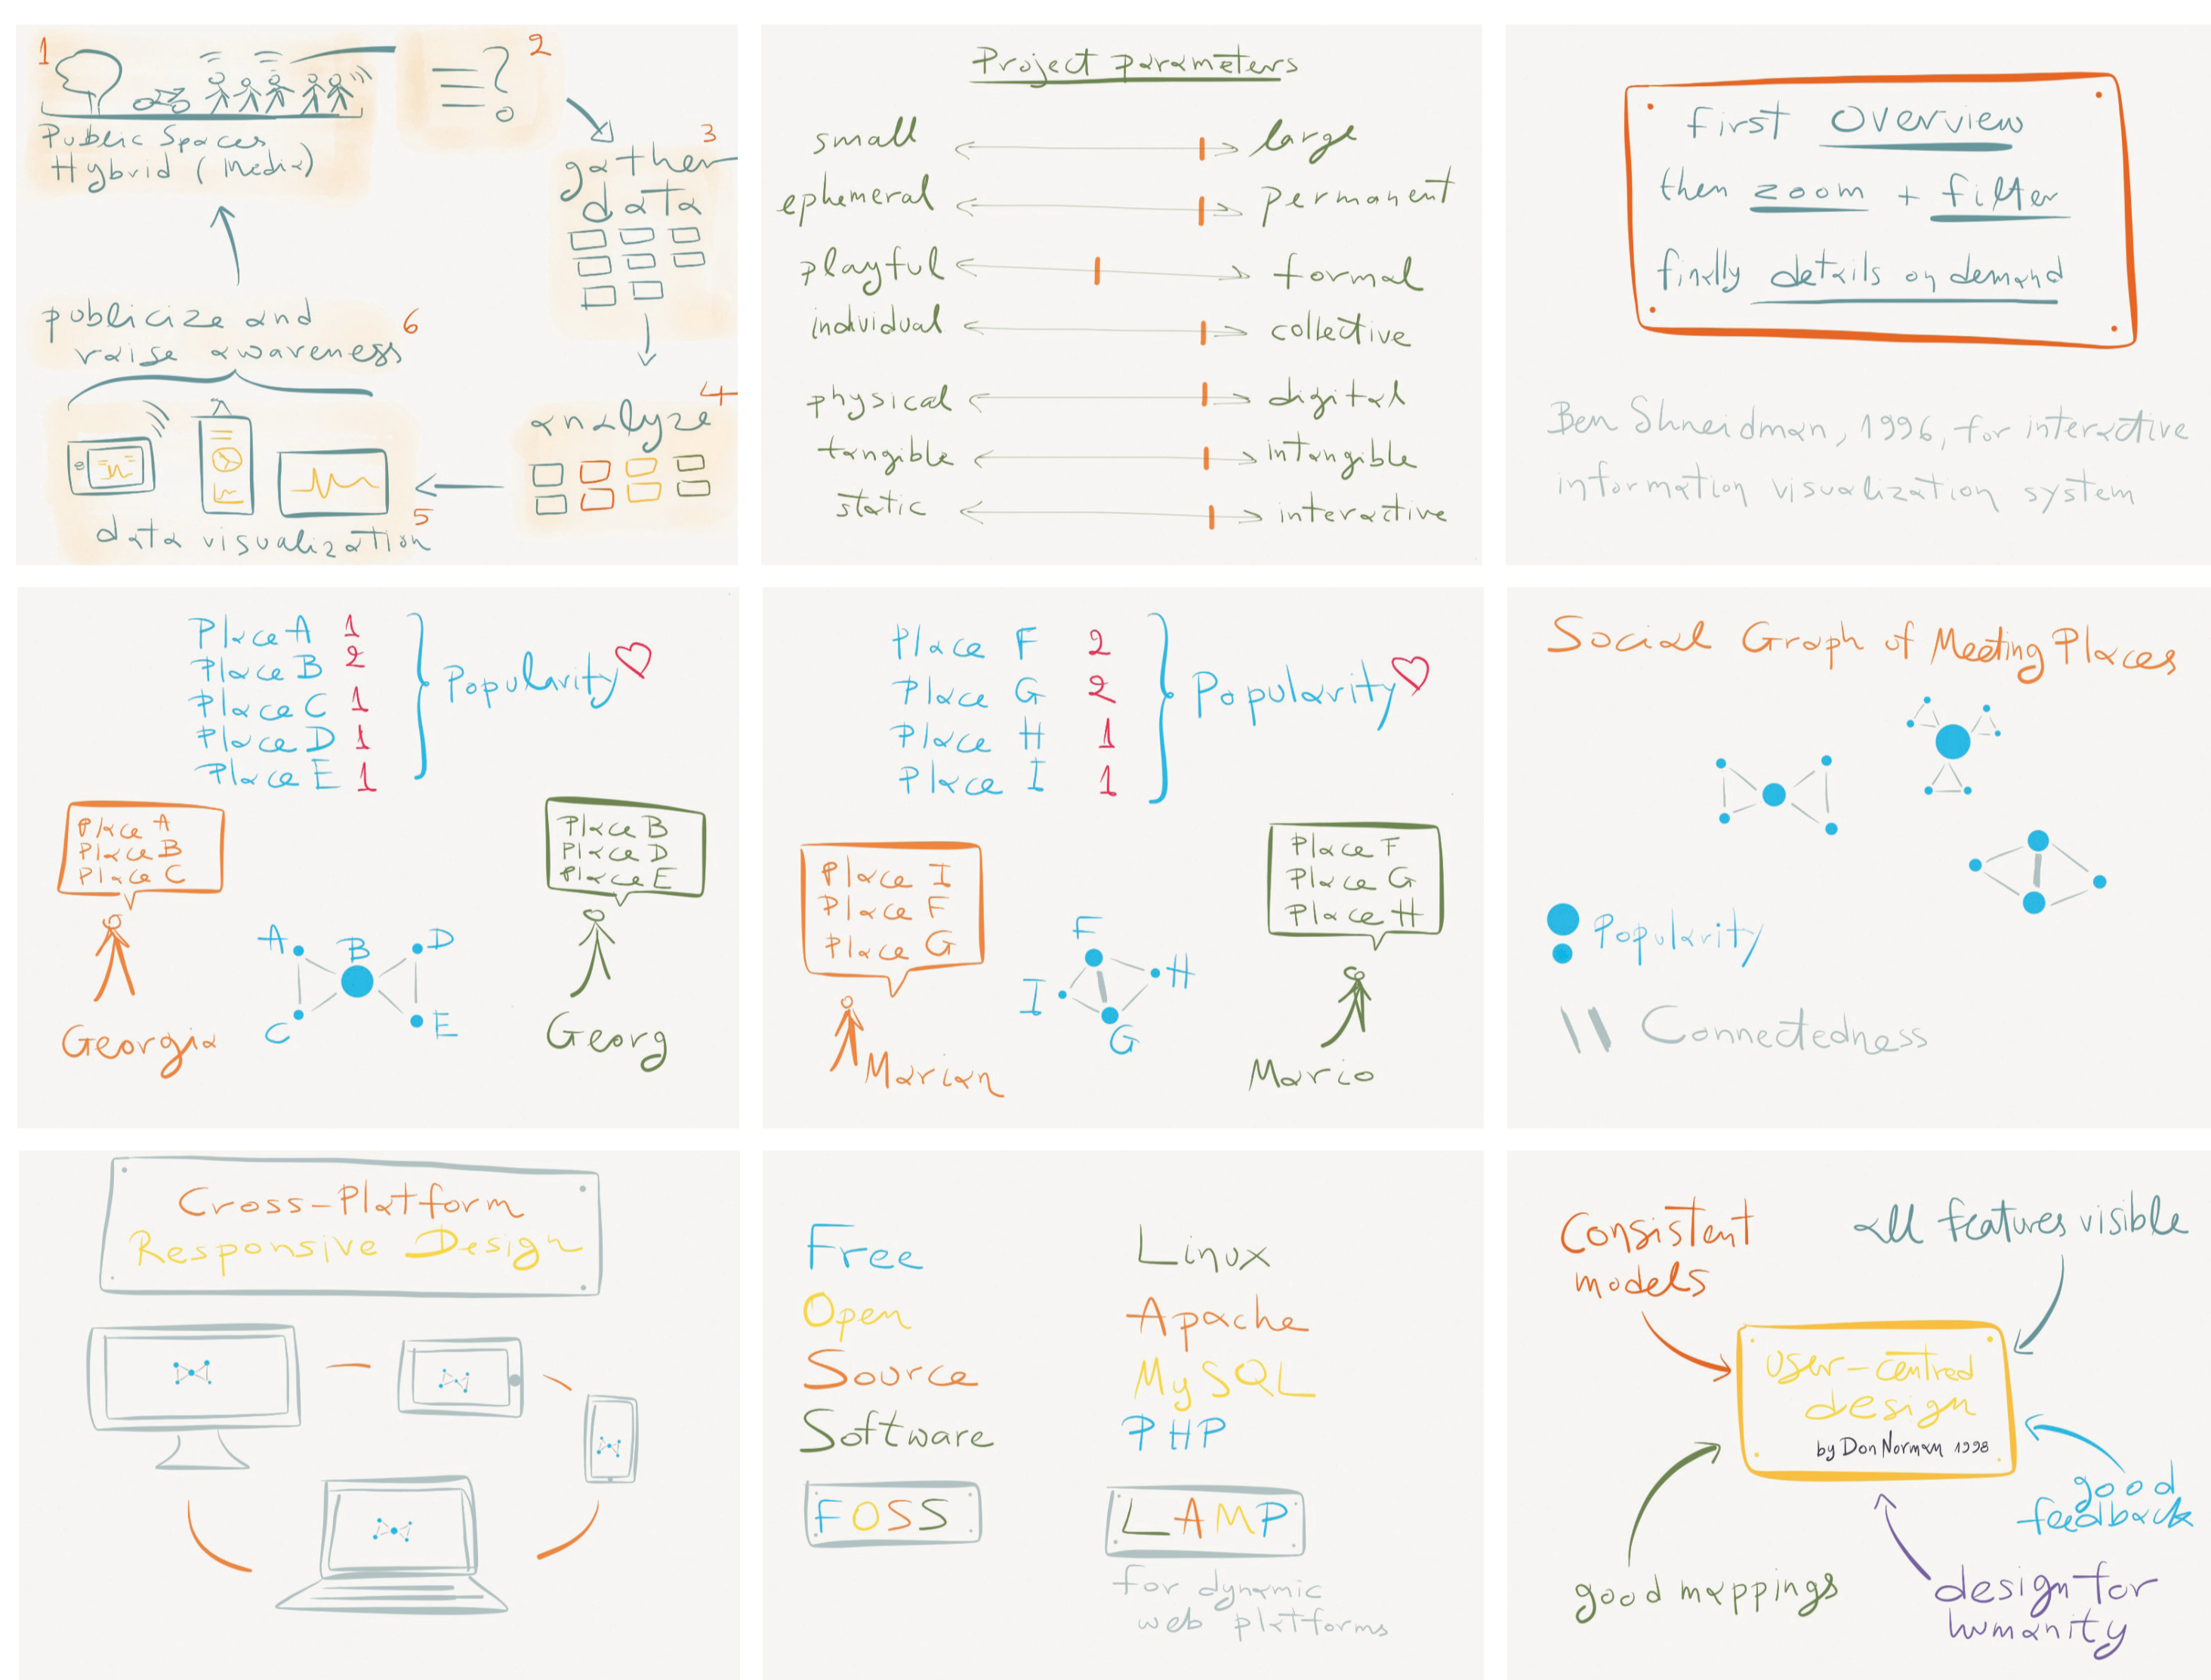 1
2
Public Spaces
Hybrid (Media)
3
gather
data
publicize and
raise awareness
6
4
analyze
5
data visualization
Project parameters
small large
ephemeral permanent
playful formal
individual collective
physical digital
tangible intangible
static interactive
first Overview
then zoom + filter
finally details on demand
Ben Shneidman, 1996, for interactive
information visualization system
Place A 1
Place B 2
Place C 1
Place D 1
Place E 1
Popularity
Place A
Place B
Place C
Place B
Place D
Place E
A
B
D
C
E
Georgia
Georg
Place F 2
Place G 2
Place H 1
Place I 1
Popularity
Place I
Place F
Place G
Place F
Place G
Place H
F
I
H
G
Marian
Mario
Social Graph of Meeting Places
Popularity
Connectedness
Cross-Platform
Responsive Design
Free
Open
Source
Software
FOSS
Linux
Apache
MySQL
PHP
LAMP
for dynamic
web platforms
Consistent
models
all features visible
user-centred
design
by Don Norman 1998
good
feedback
good mappings
design for
humanity